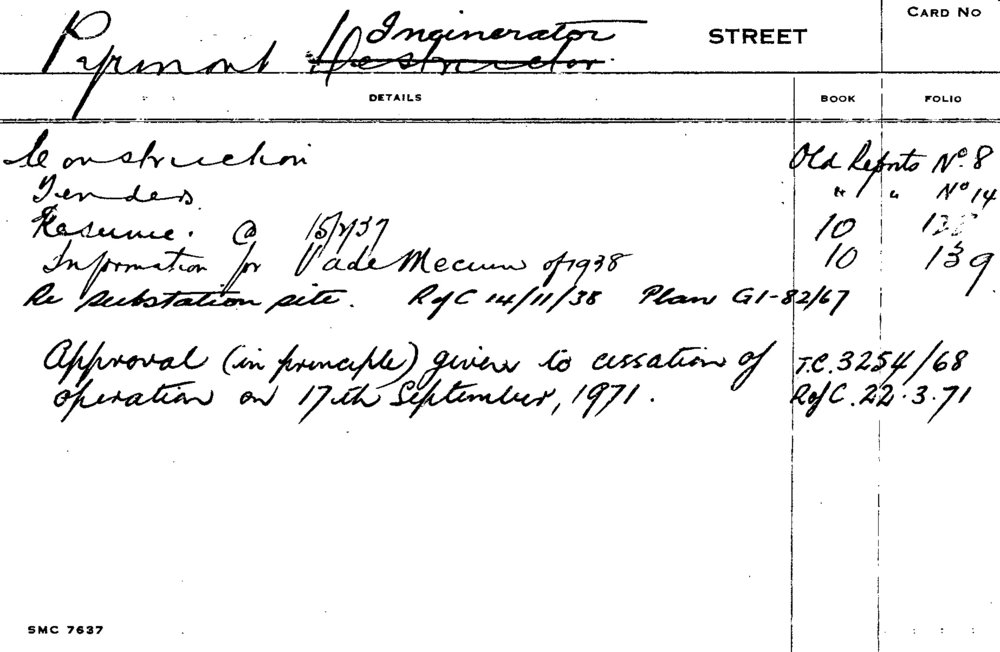 CARD NO
Incinerator
Pyrmont Destructor STREET
DETAILS BOOK FOLIO
Construction Old Reports No. 8
Tenders " " No 14
Resume. @ 10
Information for Vade Mecum of 1938 10 139
Re substation site. R of C 14/11/38 Plan G1-82/67
Approval (in principle) given to cessation of T.C. 3254/68
operation on 17th September, 1971. R of C. 22.3.71
SMC 7637